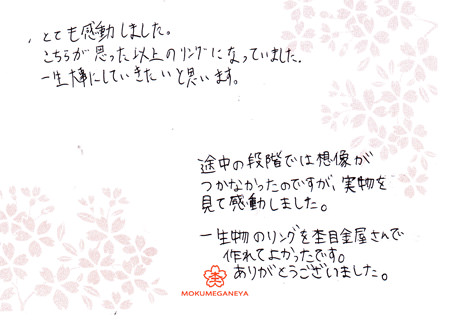 、とても感動しました。
こちらが思った以上のリングになっていました.
一生大事にしていきたいと思います。
途中の段階では想像が
つかなかったのですが、実物を
見て感動しました。
一生物のリングを杢目金屋さんで
作れてよかったです。
ありがとうございました。
MOKUMEGANEYA